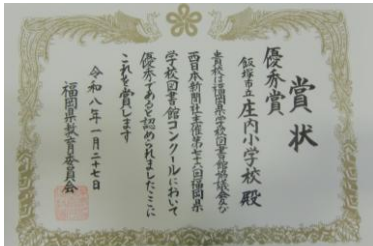 賞状
優秀賞
飯塚市立庄内小学校 殿
貴校は福岡県学校図書館協議会及び
西日本新聞社主催第七十六回福岡県
学校図書館コンクールにおいて
優秀であると認められましたここに
これを賞します
令和八年一月二十七日
福岡県教育委員会